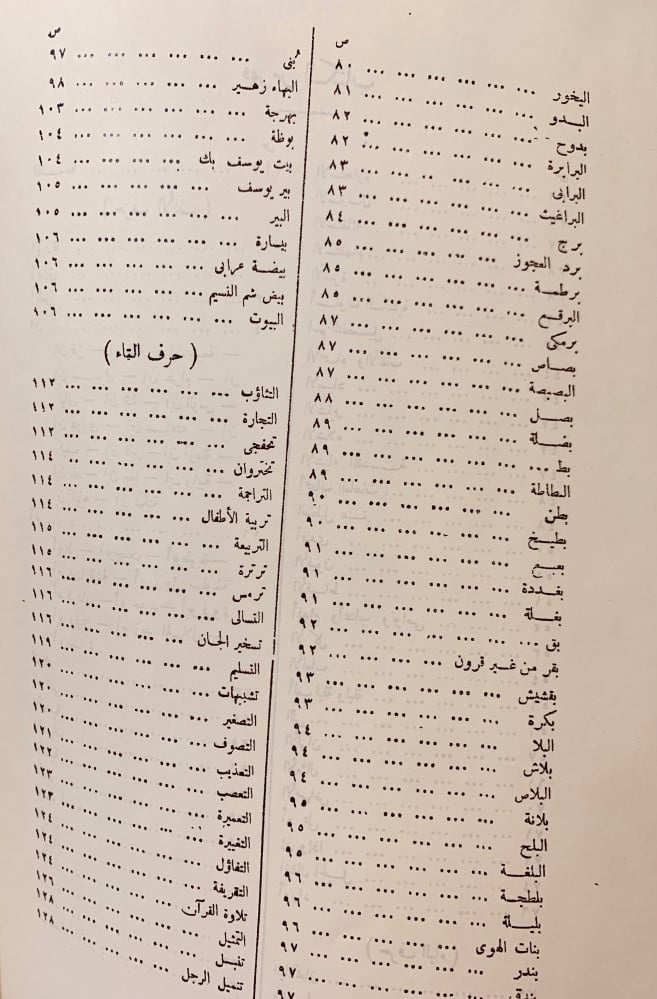 ص
البخور ... ... ... ... ... ... ٨٠
البدو ... ... ... ... ... ... ٨١
بدوح ... ... ... ... ... ... ٨٢
البرابرة ... ... ... ... ... ... ٨٢
البرابى ... ... ... ... ... ... ٨٣
البراغيث ... ... ... ... ... ... ٨٣
برج ... ... ... ... ... ... ٨٤
برد العجوز ... ... ... ... ... ٨٥
برطمة ... ... ... ... ... ... ٨٥
البرقع ... ... ... ... ... ... ٨٥
برمكى ... ... ... ... ... ... ٨٧
بصاص ... ... ... ... ... ... ٨٧
البصبصة ... ... ... ... ... ... ٨٧
بصل ... ... ... ... ... ... ٨٨
بضلة ... ... ... ... ... ... ٨٩
بط ... ... ... ... ... ... ٨٩
البطاطة ... ... ... ... ... ... ٨٩
بطن ... ... ... ... ... ... ٩٠
بطيخ ... ... ... ... ... ... ٩٠
بعبع ... ... ... ... ... ... ٩١
بغددة ... ... ... ... ... ... ٩١
بغلة ... ... ... ... ... ... ٩١
بق ... ... ... ... ... ... ٩٢
بقر من غير قرون ... ... ... ... ٩٢
بقشيش ... ... ... ... ... ... ٩٣
بكرة ... ... ... ... ... ... ٩٣
البلا ... ... ... ... ... ... ٩٤
بلاش ... ... ... ... ... ... ٩٤
البلاص ... ... ... ... ... ... ٩٤
بلانة ... ... ... ... ... ... ٩٥
البلح ... ... ... ... ... ... ٩٥
البلغة ... ... ... ... ... ... ٩٥
بلطجة ... ... ... ... ... ... ٩٦
بليلة ... ... ... ... ... ... ٩٦
بنات الهوى ... ... ... ... ... ٩٦
بندر ... ... ... ... ... ... ٩٧
بندق ... ... ... ... ... ... ٩٧
٩٧
ص
بُنى ... ... ... ... ... ... ٩٧
البهاء زهير ... ... ... ... ... ٩٨
بهرجة ... ... ... ... ... ... ١٠٣
بوظة ... ... ... ... ... ... ١٠٤
بيت يوسف بك ... ... ... ... ١٠٤
بير يوسف ... ... ... ... ... ١٠٥
البير ... ... ... ... ... ... ١٠٥
بيسارة ... ... ... ... ... ... ١٠٦
بيضة عرابى ... ... ... ... ... ١٠٦
بيض شم النسيم ... ... ... ... ١٠٦
البيوت ... ... ... ... ... ... ١٠٦
( حرف التاء )
التثاؤب ... ... ... ... ... ... ١١٢
التجارة ... ... ... ... ... ... ١١٢
تحفجى ... ... ... ... ... ... ١١٢
تختروان ... ... ... ... ... ... ١١٤
التراجمة ... ... ... ... ... ... ١١٤
تربية الأطفال ... ... ... ... ... ١١٤
التربيعة ... ... ... ... ... ... ١١٥
ترترة ... ... ... ... ... ... ١١٥
ترمس ... ... ... ... ... ... ١١٦
التسالى ... ... ... ... ... ... ١١٦
تسخير الجان ... ... ... ... ... ١١٦
التسليم ... ... ... ... ... ... ١١٩
تشبيهات ... ... ... ... ... ... ١٢٠
التصغير ... ... ... ... ... ... ١٢٠
التصوف ... ... ... ... ... ... ١٢٠
التعذيب ... ... ... ... ... ... ١٢١
التعصب ... ... ... ... ... ... ١٢٢
التعميرة ... ... ... ... ... ... ١٢٣
التغييرة ... ... ... ... ... ... ١٢٣
التفاؤل ... ... ... ... ... ... ١٢٤
التقريفة ... ... ... ... ... ... ١٢٤
تلاوة القرآن ... ... ... ... ... ١٢٤
التمثيل ... ... ... ... ... ... ١٢٦
تنبل ... ... ... ... ... ... ١٢٨
تنميل الرجل ... ... ... ... ... ١٢٨